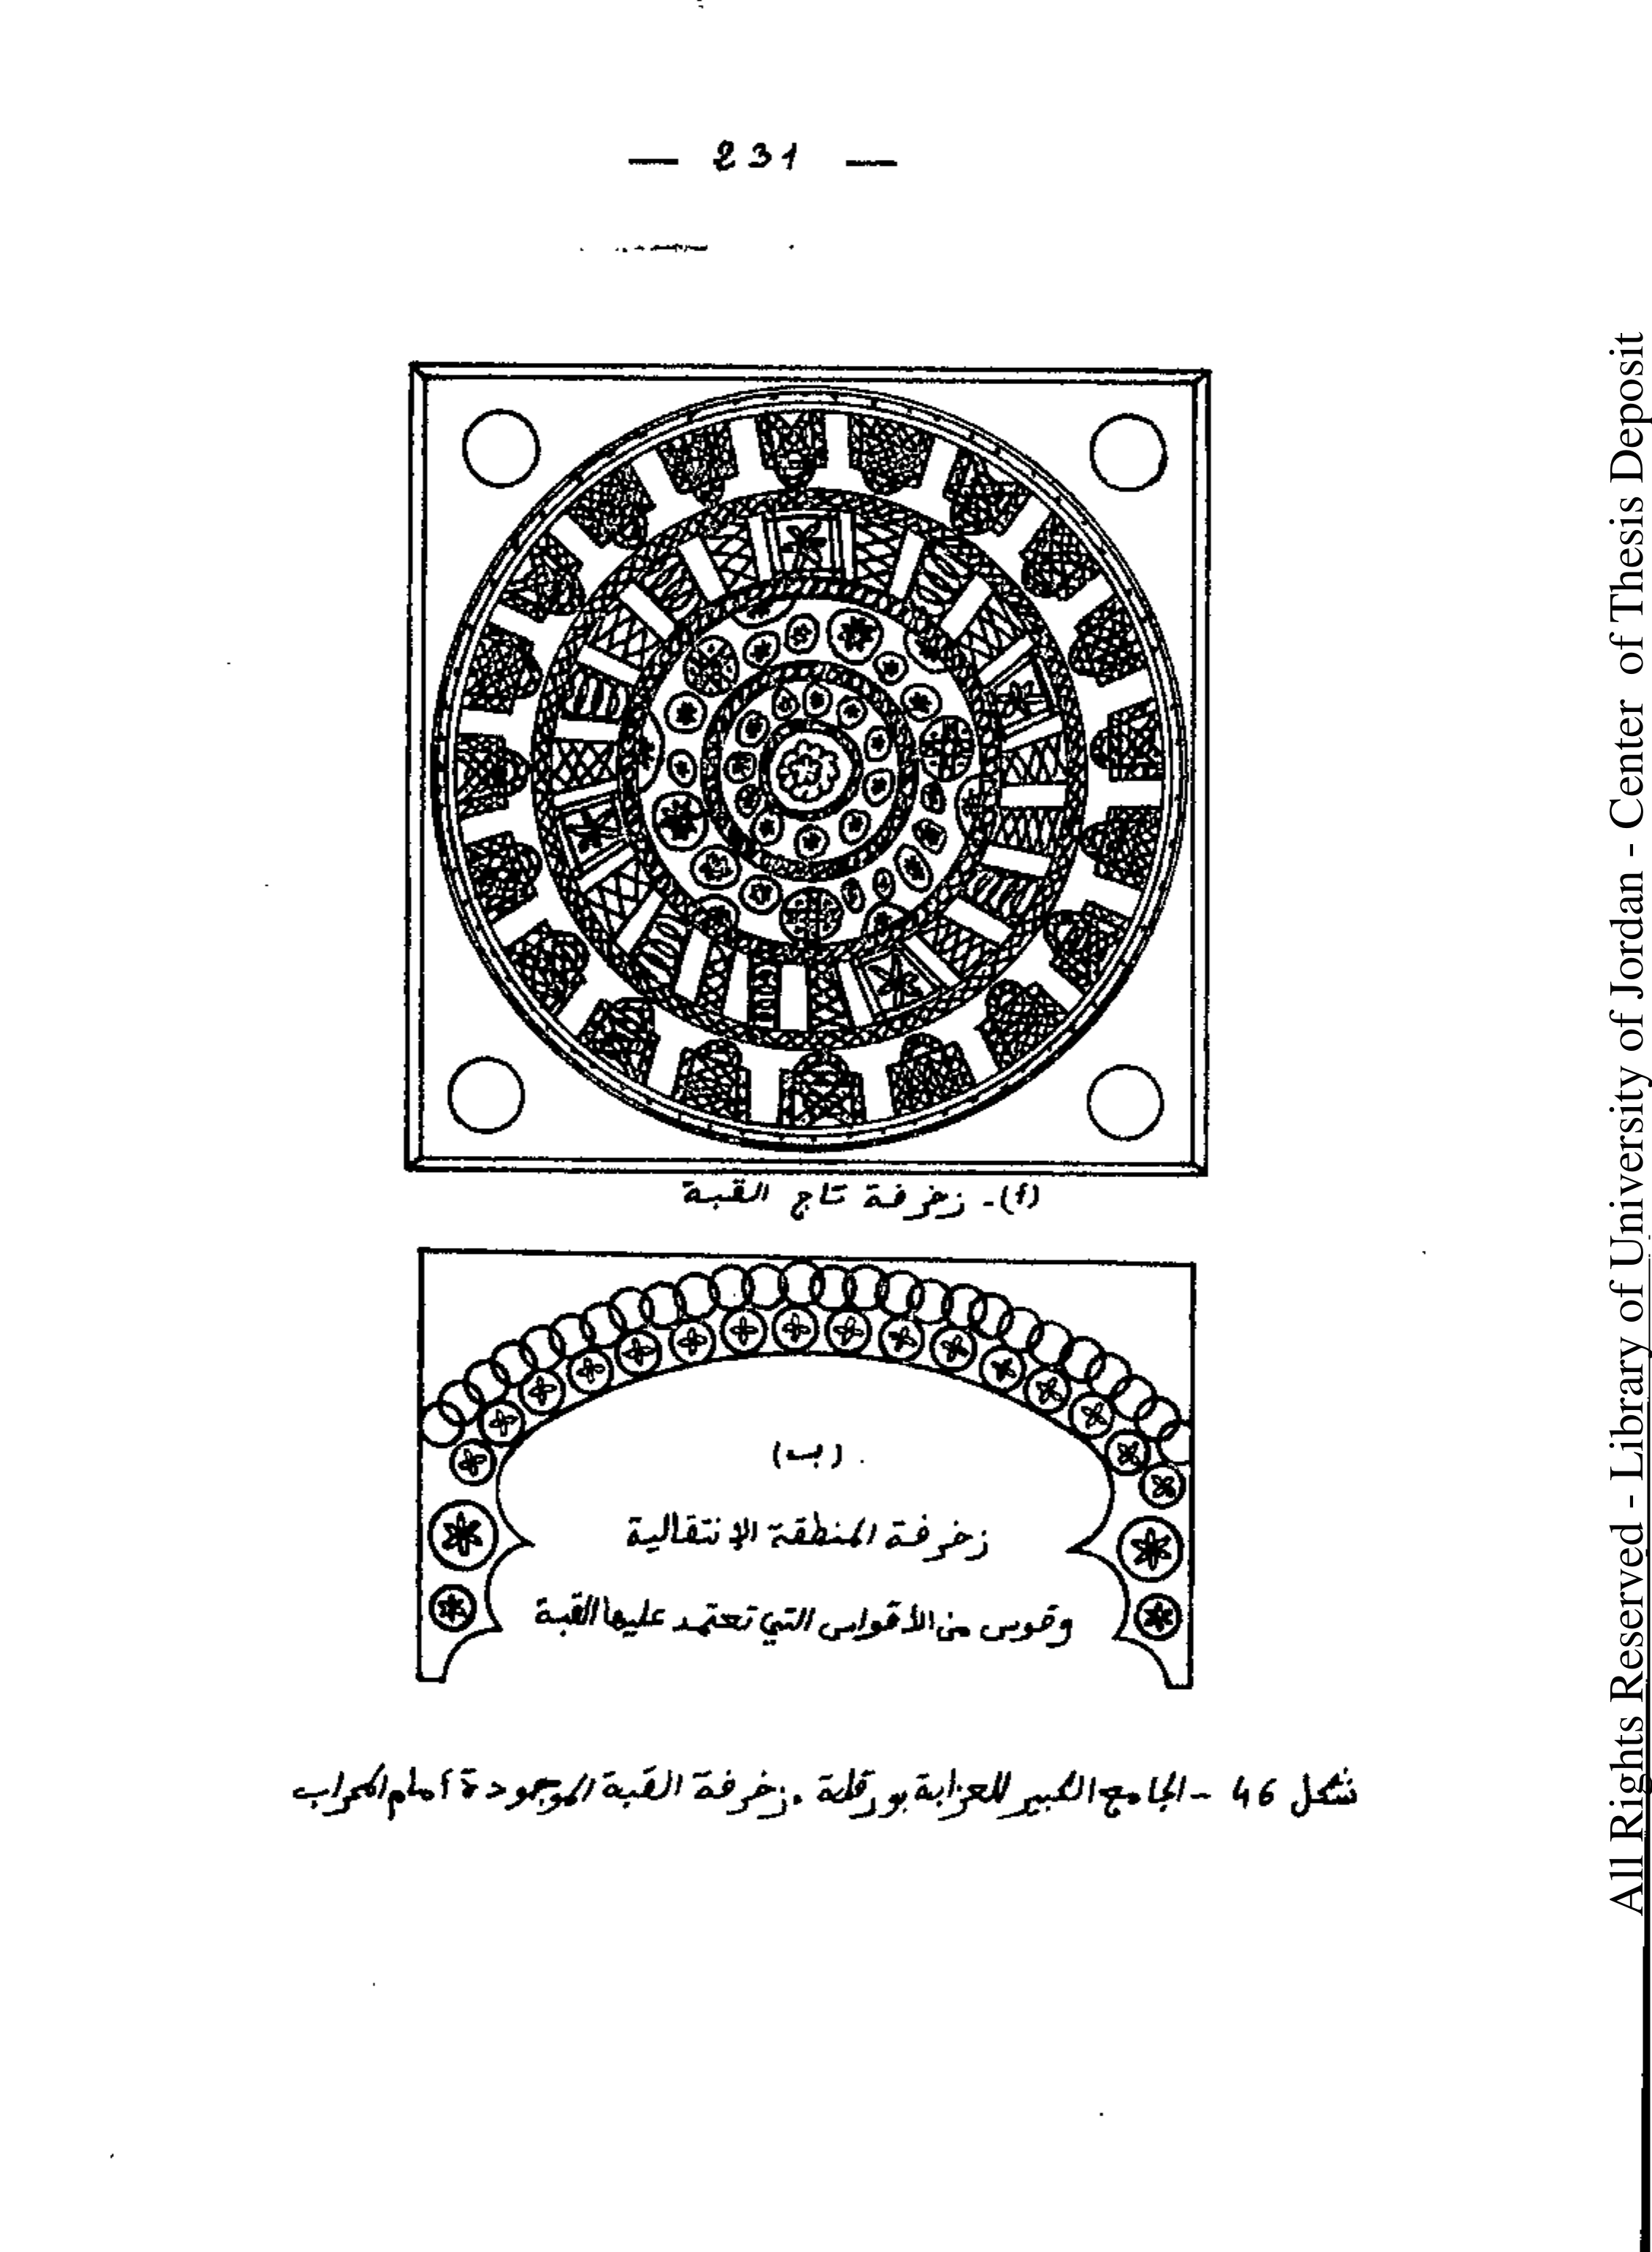 — 231 —
(أ) - زخرفة تاج القبة
(ب)
زخرفة المنطقة الإنتقالية
وقوس من الأقواس التي تعتمد عليها القبة
شكل 46 - الجامع الكبير للعزابة بورقلة . زخرفة القبة الموجودة أمام المحراب
All Rights Reserved - Library of University of Jordan - Center of Thesis Deposit